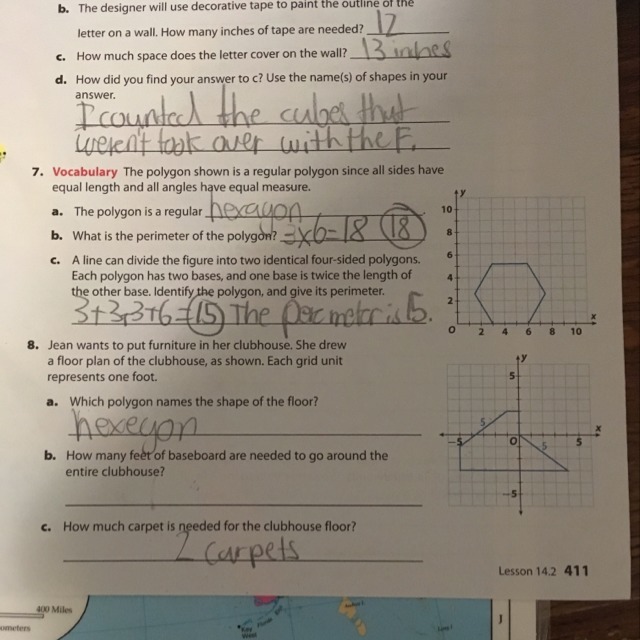 b. The designer will use decorative tape to paint the outline of the
letter on a wall. How many inches of tape are needed? 12
c. How much space does the letter cover on the wall? 13 inches
d. How did you find your answer to c? Use the name(s) of shapes in your
answer.
I counted the cubes that
weren't took over with the F.
7. Vocabulary The polygon shown is a regular polygon since all sides have
equal length and all angles have equal measure.
a. The polygon is a regular hexagon
b. What is the perimeter of the polygon? 3x6=18 18
c. A line can divide the figure into two identical four-sided polygons.
Each polygon has two bases, and one base is twice the length of
the other base. Identify the polygon, and give its perimeter.
3+3+3+6=15 The permeter is 15.
y
10
8
6
4
2
O 2 4 6 8 10 x
8. Jean wants to put furniture in her clubhouse. She drew
a floor plan of the clubhouse, as shown. Each grid unit
represents one foot.
a. Which polygon names the shape of the floor?
hexegon
b. How many feet of baseboard are needed to go around the
entire clubhouse?
c. How much carpet is needed for the clubhouse floor?
2 carpets
y
5
5
x
-5 O 5 5
-5
Lesson 14.2 411
400 Miles
ometers
Key
West
J